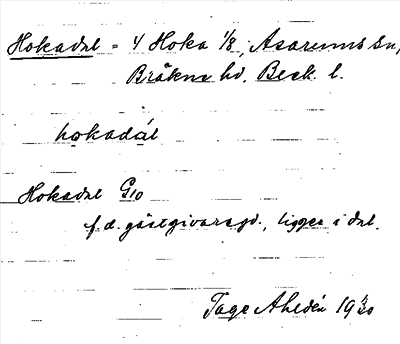 Hokadal = 4 Hoka 1/8, Asarums sn,
Bräkne hd, Bleck. l.
hokadál
Hokadal G10
f.d. gästgivaregd., ligger i dal.
Tage Ahldén 1930